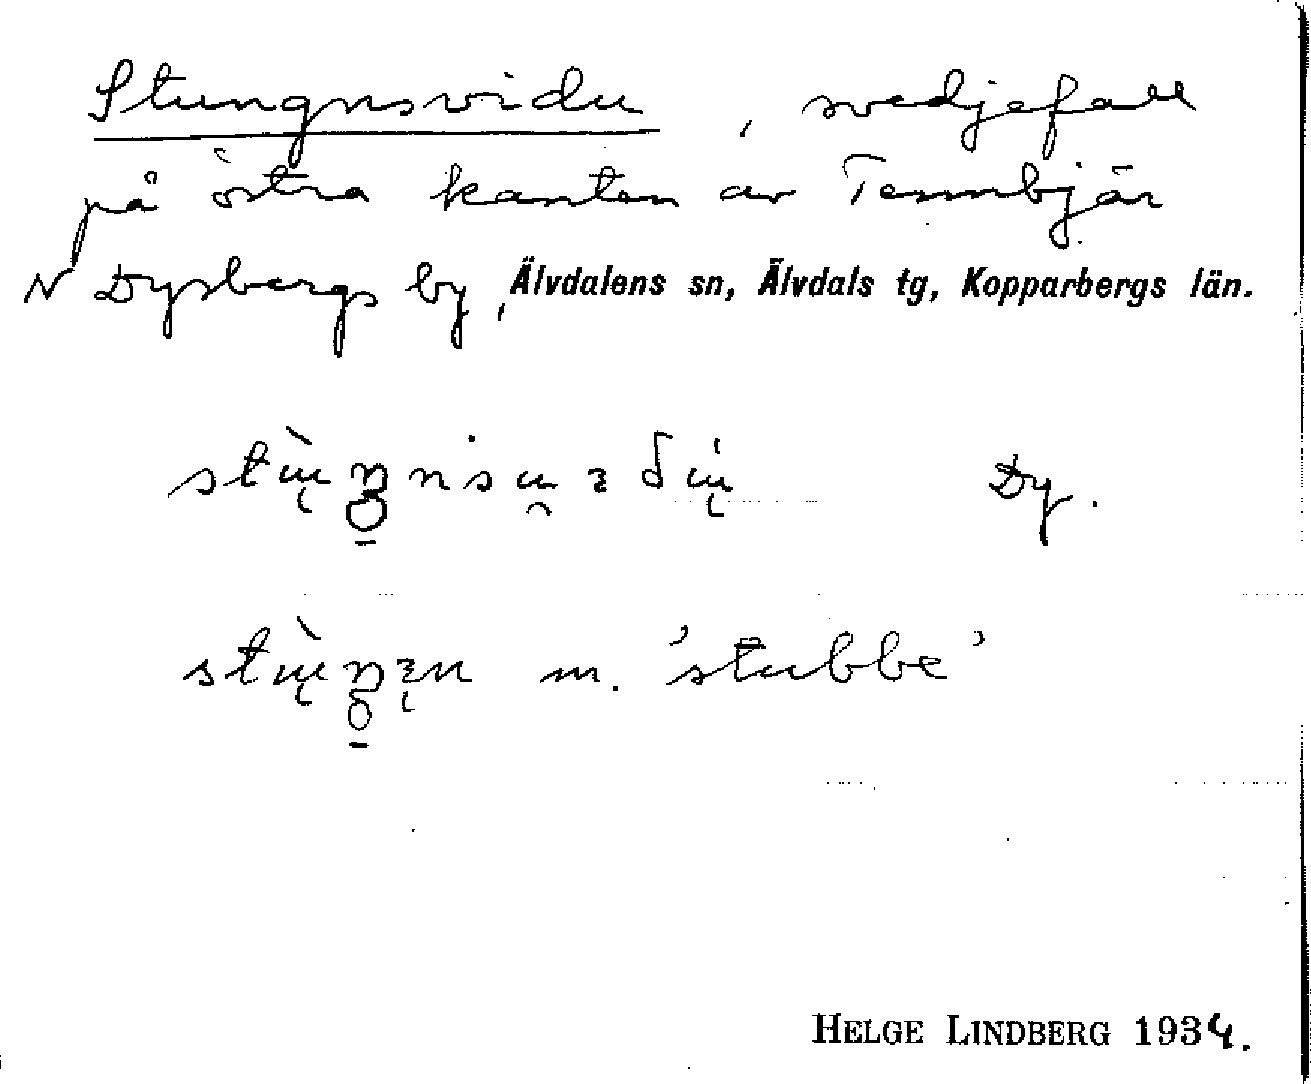 Stungnsvidu, svedjefall
på östra kanten av Tennbjär
N Dysbergs by, Älvdalens sn, Älvdals tg, Kopparbergs län.
Dy.
m. 'stubbe'
HELGE LINDBERG 1934.